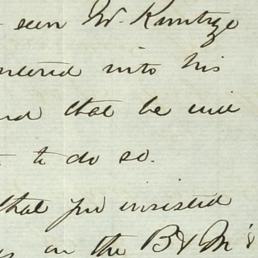 seen Mr. Kountze
entered into his
and that he will
to do so.
that you insisted
on the B & M's